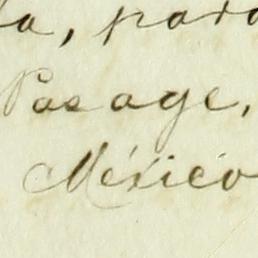 la, para
Pasage,
México